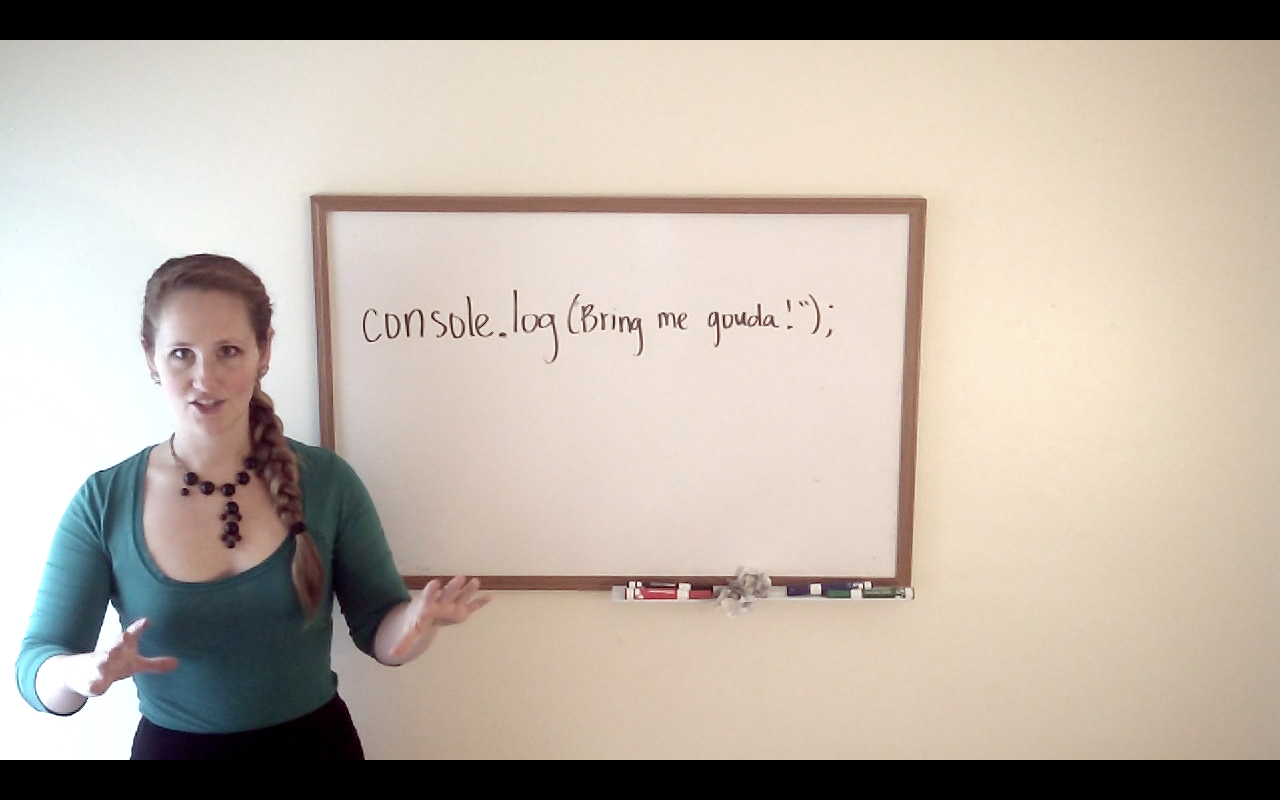 console.log(Bring me gouda!");